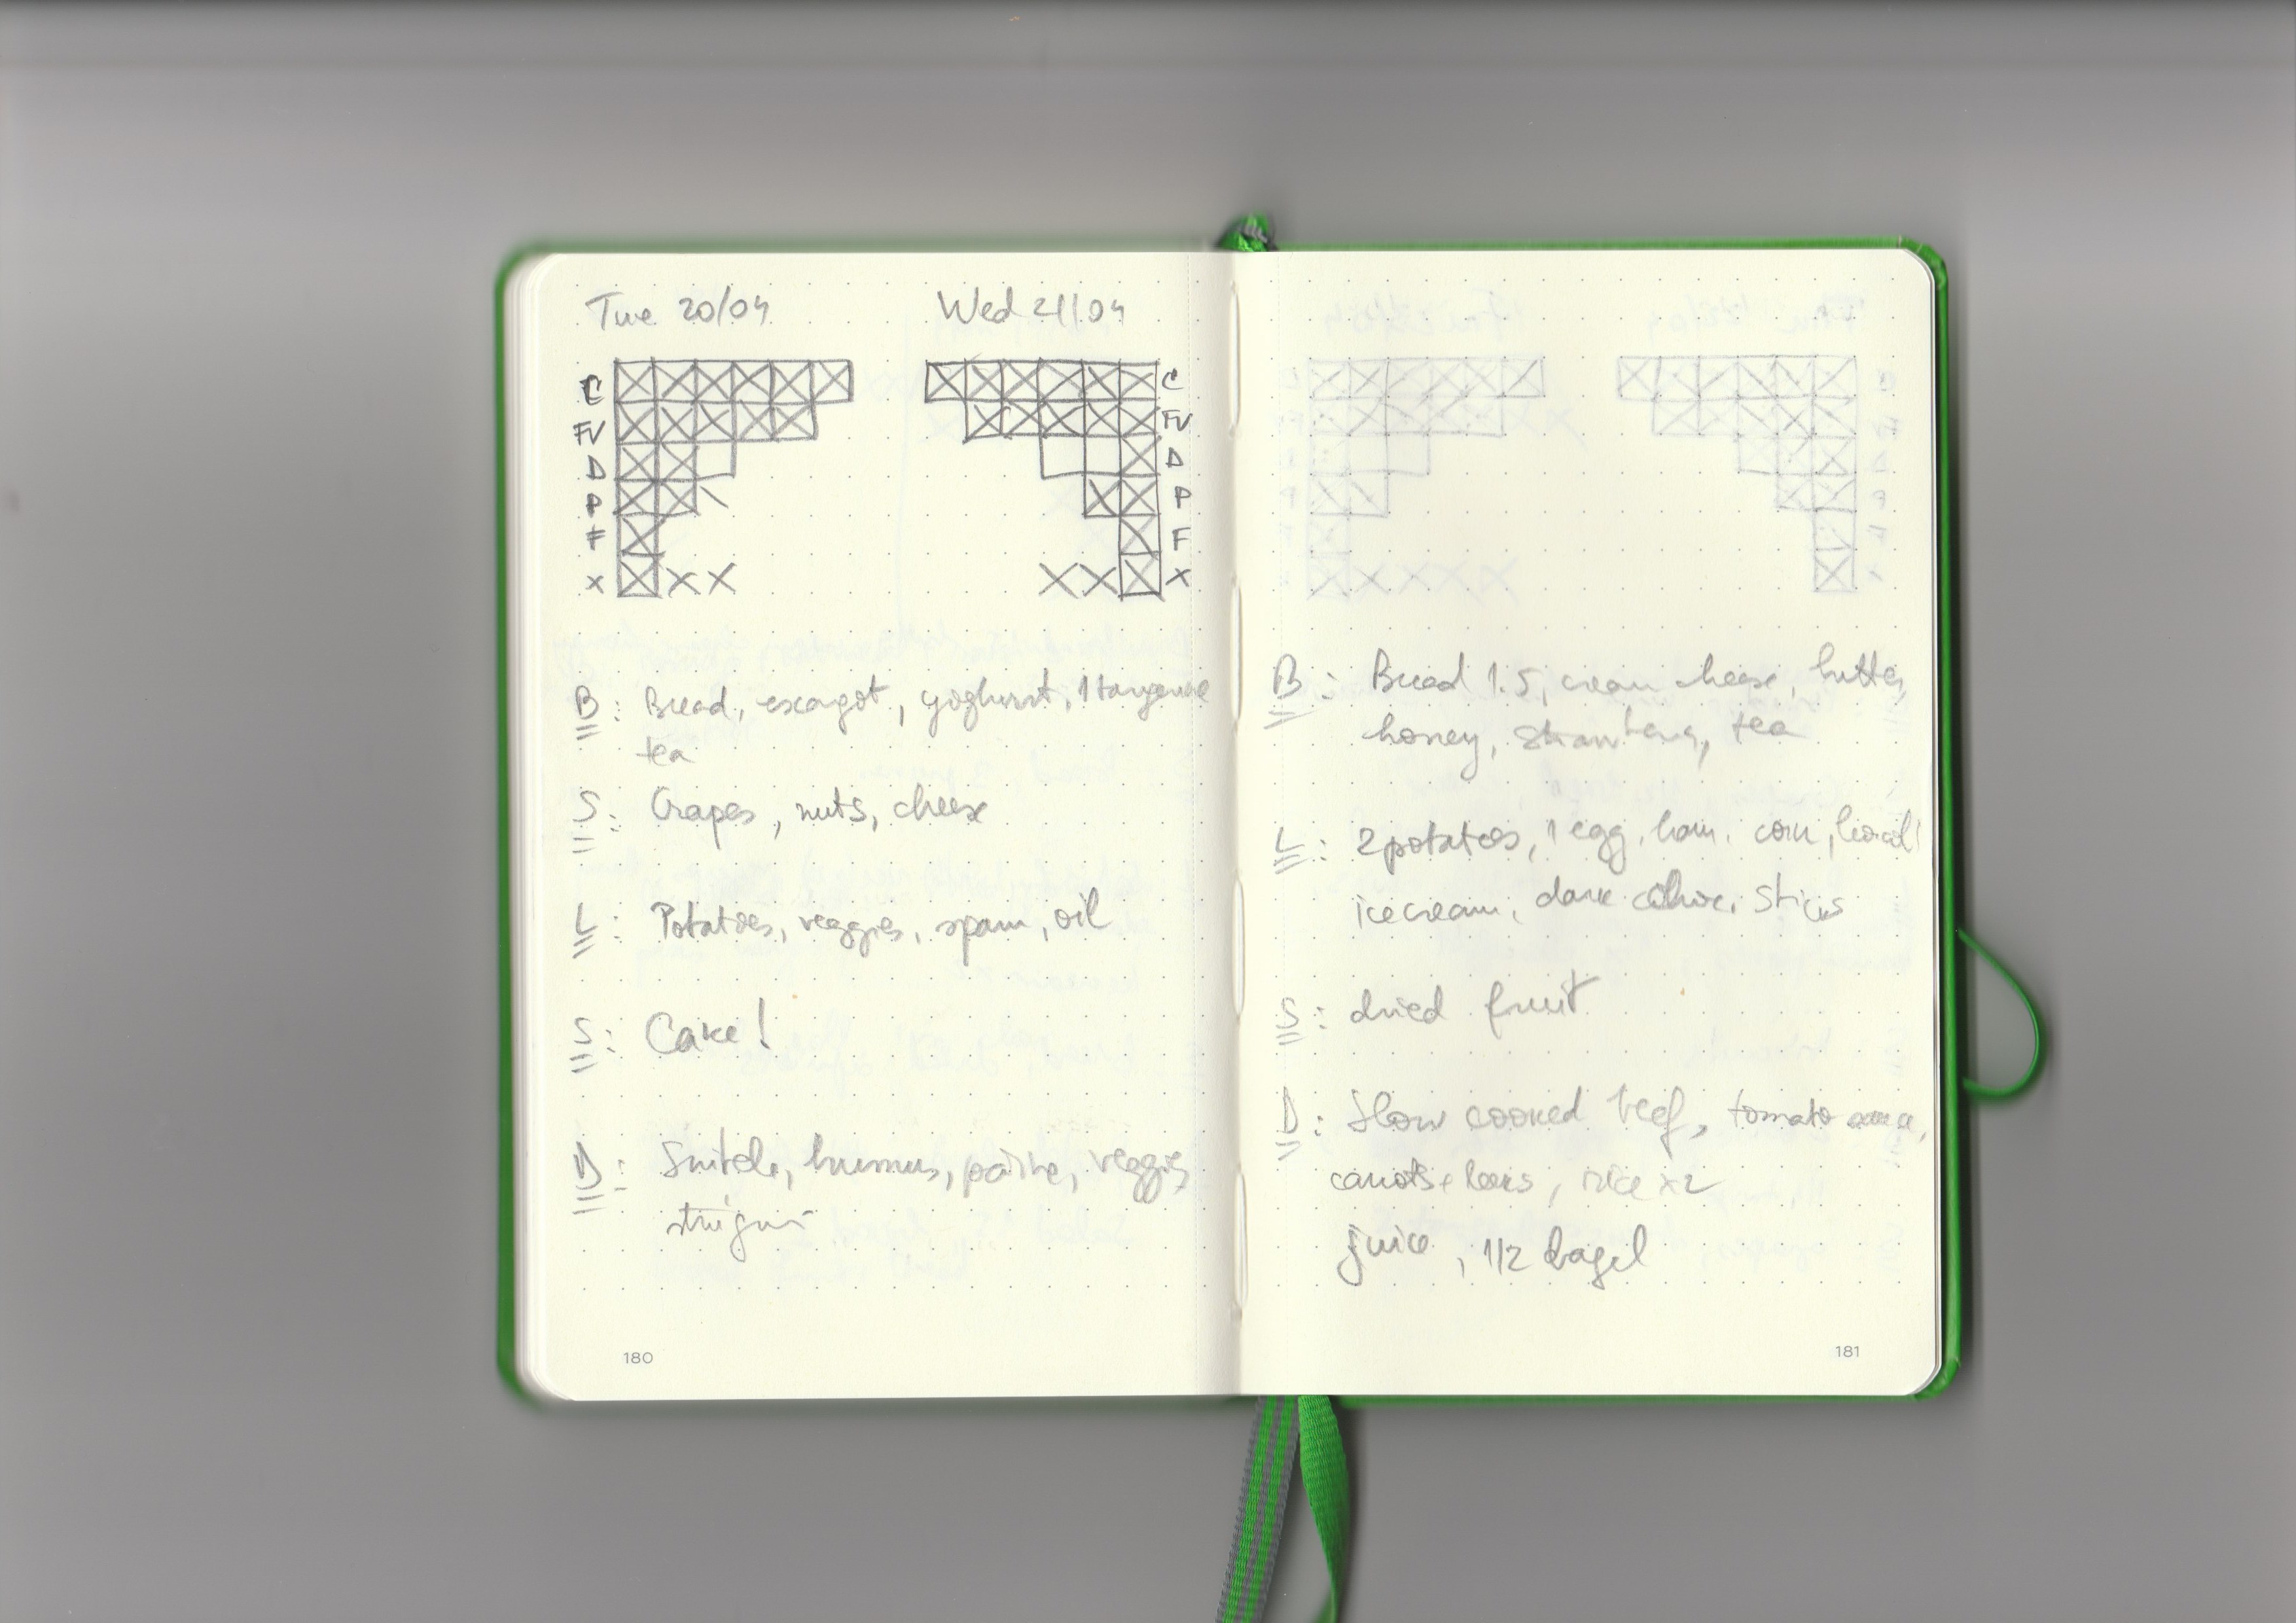 Tue 20/04 Wed 21/04
C C
FV FV
D D
P P
F F
X XX XX X
B: Bread, escargot, yoghurt, 1 tangerine
tea
S: Grapes, nuts, cheese
L: Potatoes, veggies, spam, oil
S: Cake!
D: humus, veggies
180
B: Bread 1.5, cream cheese, butter,
honey, tea
L: 2 potatoes, 1 egg, ham, corn,
icecream, dark sticks
S: dried fruit
D: Slow cooked beef, tomato
carrots + rice x2
juice, 1/2 bagel
181